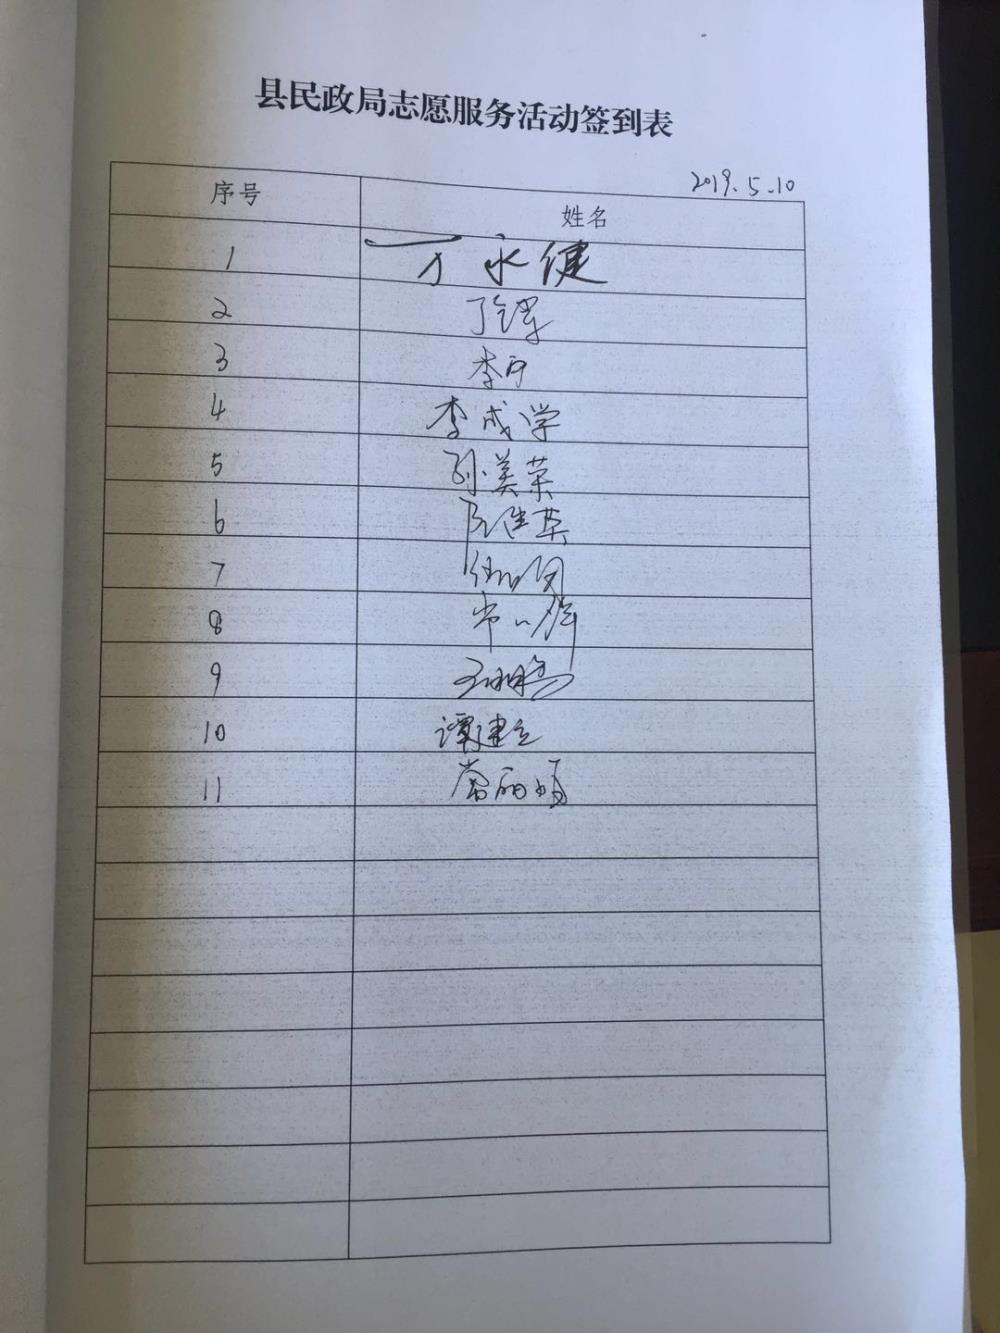 县民政局志愿服务活动签到表
2019.5.10
序号 姓名
1 万永健
2
3 李可
4 李成学
5 孙美荣
6 英
7
8 常
9
10 谭建立
11 丽娟